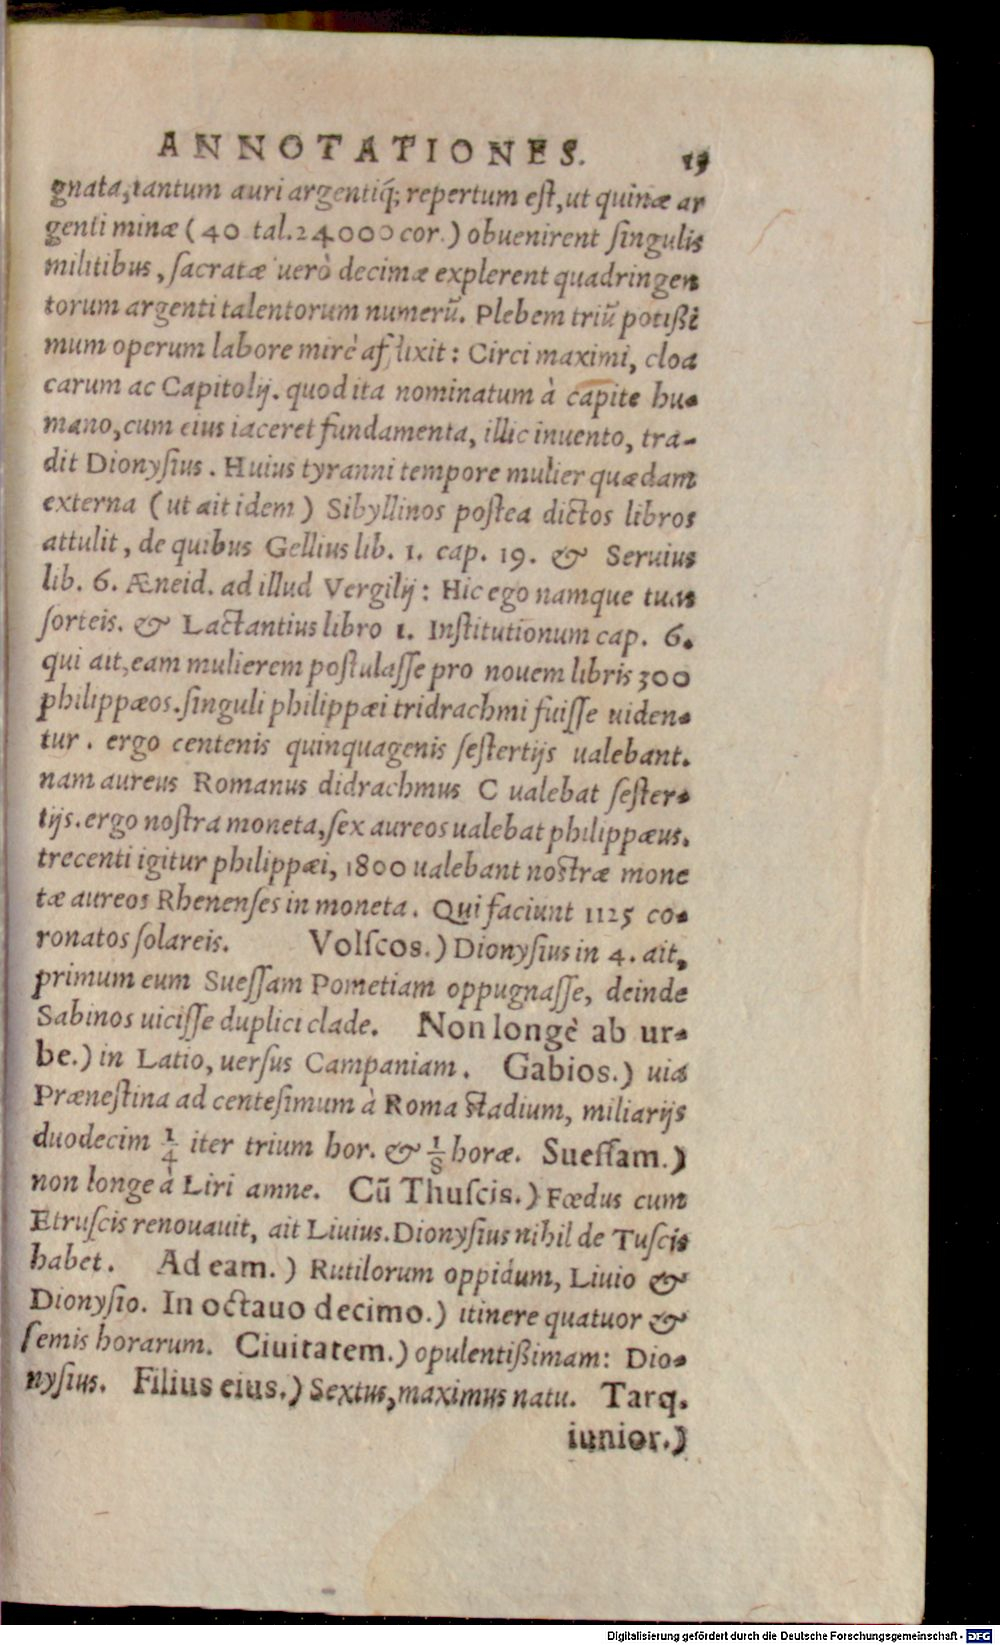 ANNOTATIONES. 19
gnata, tantum auri argentiq́; repertum eſt, ut quinæ ar
genti minæ (40 tal. 24000 cor.) obuenirent ſingulis
militibus, ſacratæ uerò decimæ explerent quadringen
torum argenti talentorum numerū. Plebem triū potißi
mum operum labore mirè afflixit: Circi maximi, cloa
carum ac Capitolij. quod ita nominatum à capite hu-
mano, cum eius iaceret fundamenta, illic inuento, tra-
dit Dionyſius. Huius tyranni tempore mulier quædam
externa (ut ait idem) Sibyllinos poſtea dictos libros
attulit, de quibus Gellius lib. 1. cap. 19. & Seruius
lib. 6. Æneid. ad illud Vergilij: Hic ego namque tuas
ſorteis. & Lactantius libro 1. Inſtitutionum cap. 6.
qui ait, eam mulierem poſtulaſſe pro nouem libris 300
philippæos. ſinguli philippæi tridrachmi fuiſſe uiden-
tur. ergo centenis quinquagenis ſeſtertijs ualebant.
nam aureus Romanus didrachmus C ualebat ſeſter-
tijs. ergo noſtra moneta, ſex aureos ualebat philippæus.
trecenti igitur philippæi, 1800 ualebant noſtræ mone
tæ aureos Rhenenſes in moneta. Qui faciunt 1125 co-
ronatos ſolareis. Volſcos.) Dionyſius in 4. ait,
primum eum Sueſſam Pometiam oppugnaſſe, deinde
Sabinos uiciſſe duplici clade. Non longè ab ur-
be.) in Latio, uerſus Campaniam. Gabios.) uia
Præneſtina ad centeſimum à Roma ſtadium, miliarijs
duodecim 1/4 iter trium hor. & 1/8 horæ. Sueſſam.)
non longe à Liri amne. Cū Thuſcis.) Fœdus cum
Etruſcis renouauit, ait Liuius. Dionyſius nihil de Tuſcis
habet. Ad eam.) Rutilorum oppidum, Liuio &
Dionyſio. In octauo decimo.) itinere quatuor &
ſemis horarum. Ciuitatem.) opulentißimam: Dio-
nyſius. Filius eius.) Sextus, maximus natu. Tarq.
iunior.)
Digitalisierung gefördert durch die Deutsche Forschungsgemeinschaft - DFG